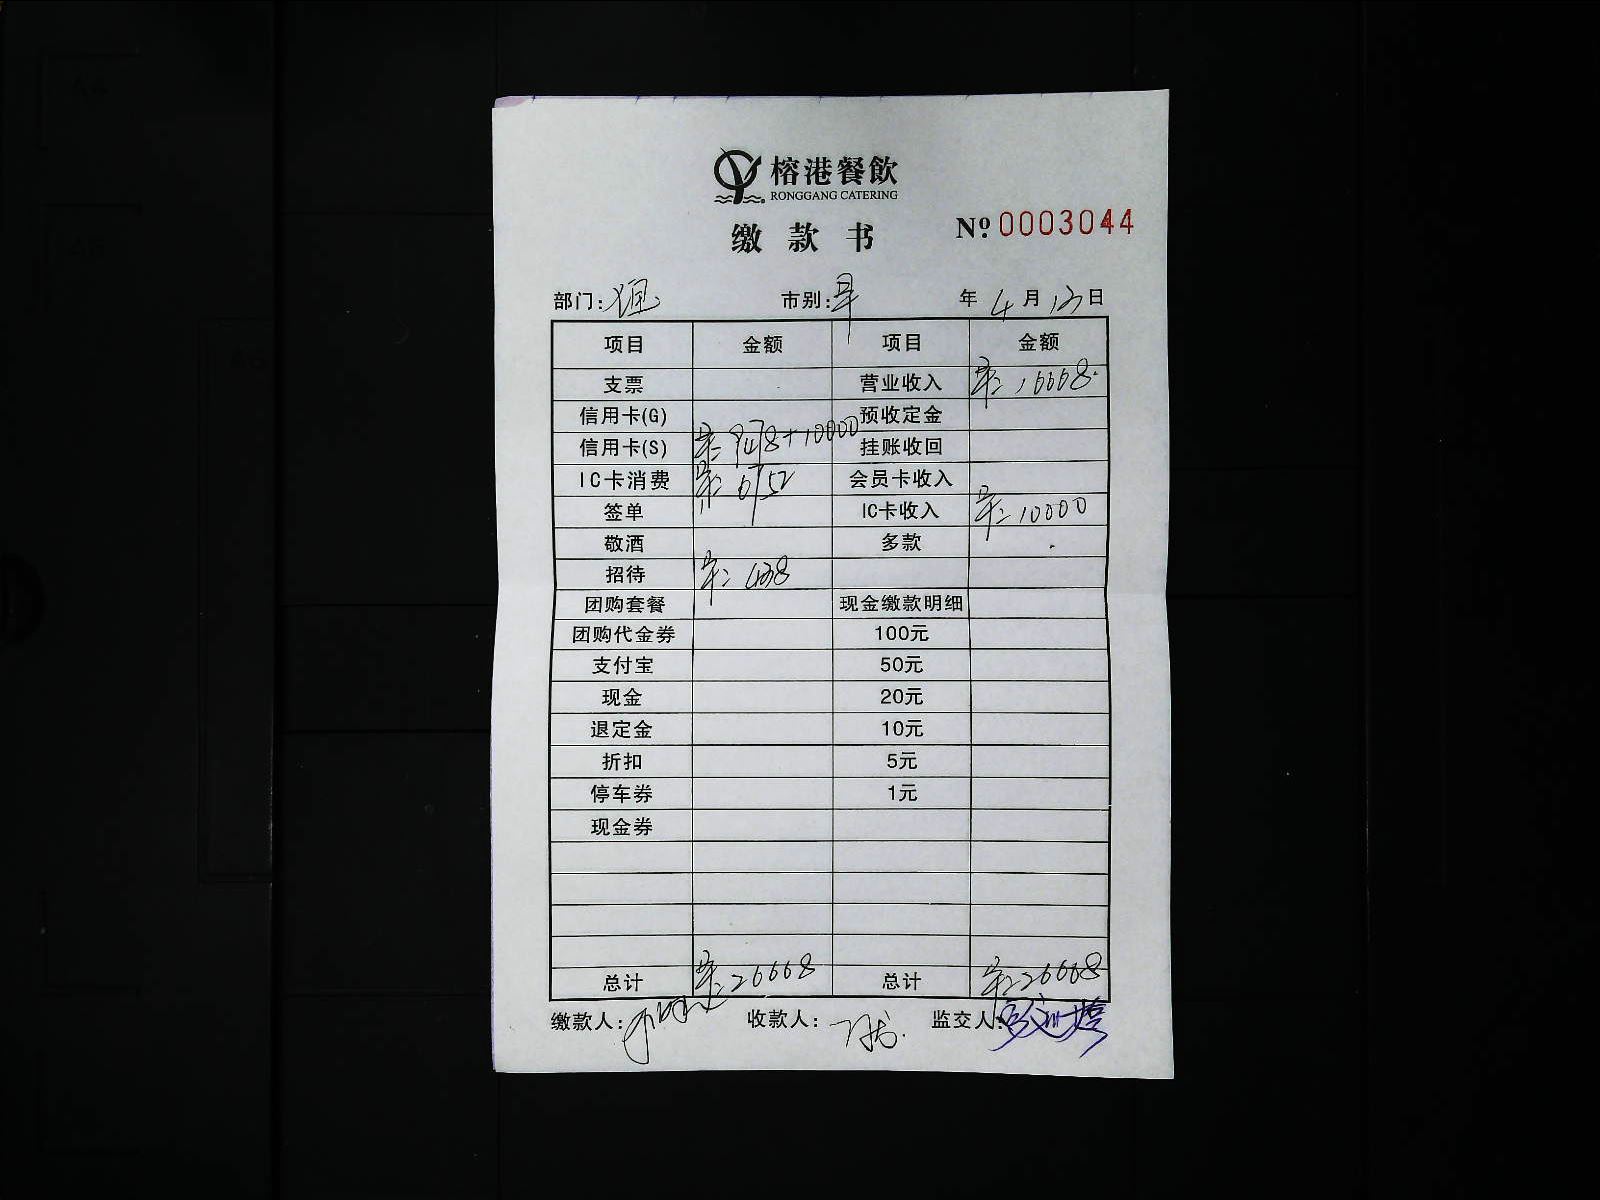 榕港餐飲
RONGGANG CATERING
缴款书 Nº 0003044
部门: 市别:早 年 4月 13日
项目 金额 项目 金额
支票 营业收入 早:16668
信用卡(G) 预收定金
信用卡(S) 早:9478+10000 挂账收回
IC卡消费 早:6752 会员卡收入
签单 IC卡收入 早:10000
敬酒 多款
招待 早:438
团购套餐 现金缴款明细
团购代金券 100元
支付宝 50元
现金 20元
退定金 10元
折扣 5元
停车券 1元
现金券
总计 早:26668 总计 早:26668
缴款人: 收款人: 监交人: